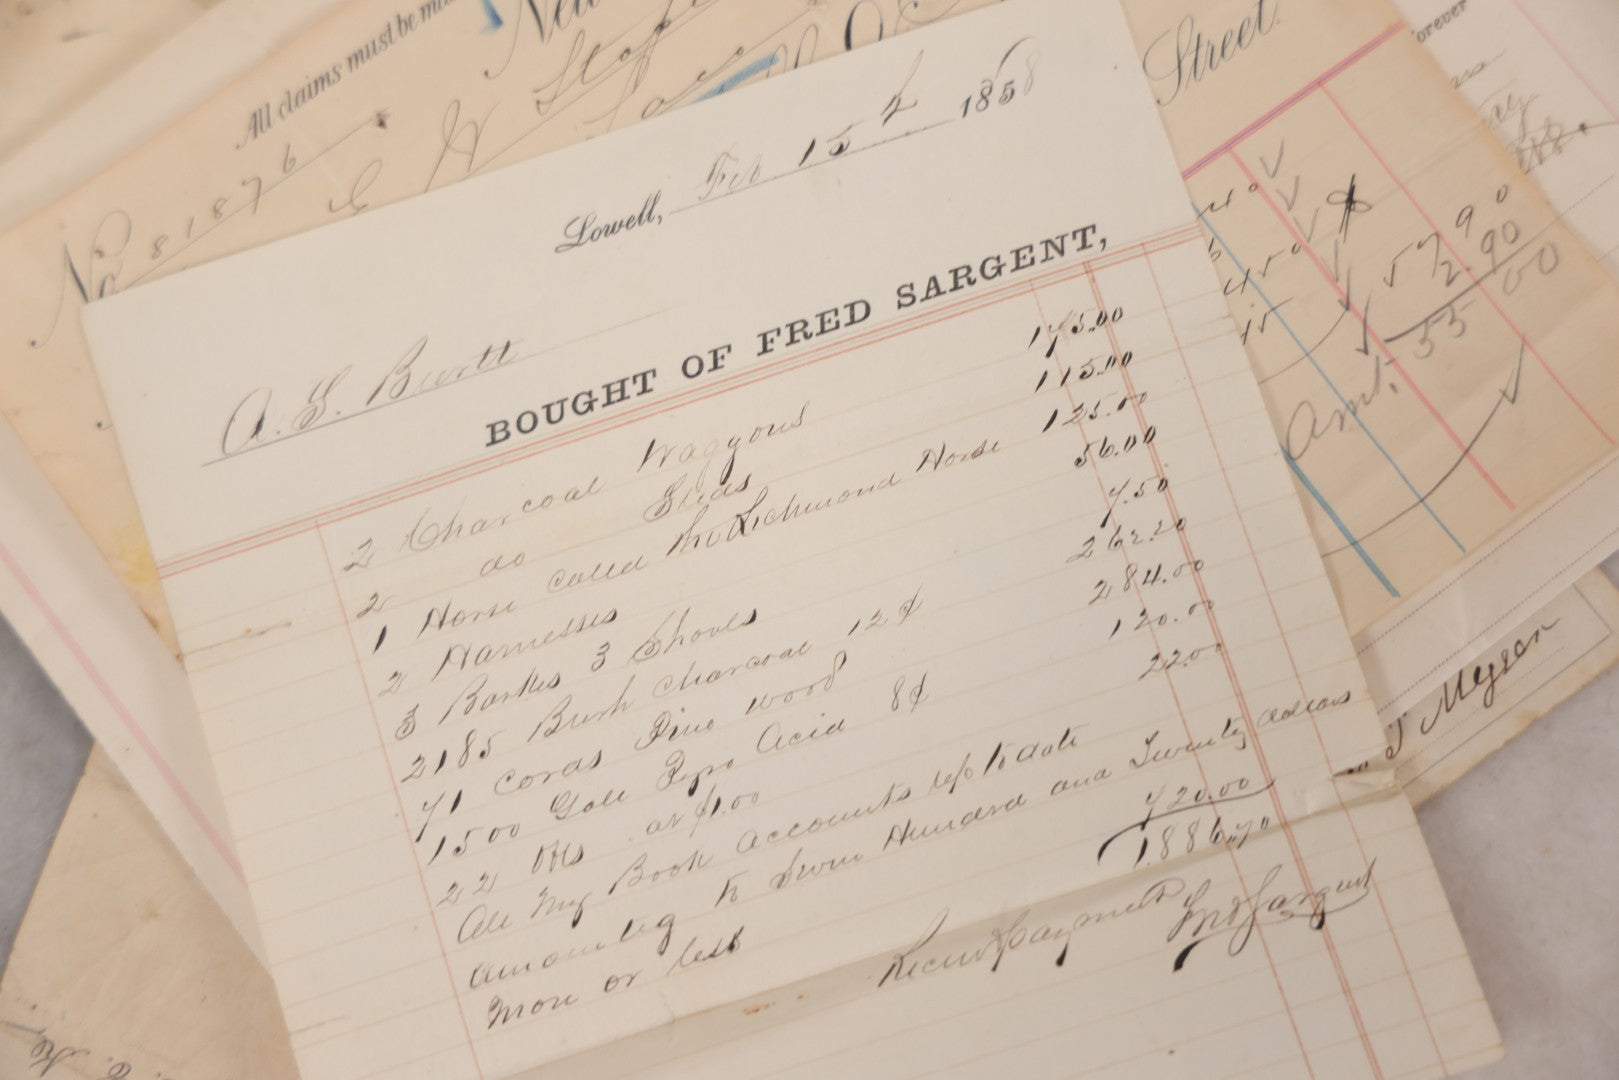 All claims must be ma
New
Street.
orever
No 81876
Lowell, Feb 15 1858
A. G. Burtt
BOUGHT OF FRED SARGENT,
2 Charcoal Waggons 175.00
2 do Sleds 115.00
1 Horse called Richmond Horse 125.00
2 Harnesses 56.00
3 Baskes 3 Shovels 7.50
2185 Bush charcoal 12¢ 262.20
71 cords Pine wood 284.00
1500 Galls Pyro Acid 8¢ 120.00
22 Bbls at $1.00 22.00
All My Book accounts up to date
amounting to Seven Hundred and Twenty dollars
More or less 720.00
1886.70
Recd Payment Fred Sargent
450
15
579 0
2.90
55 00
Amt,